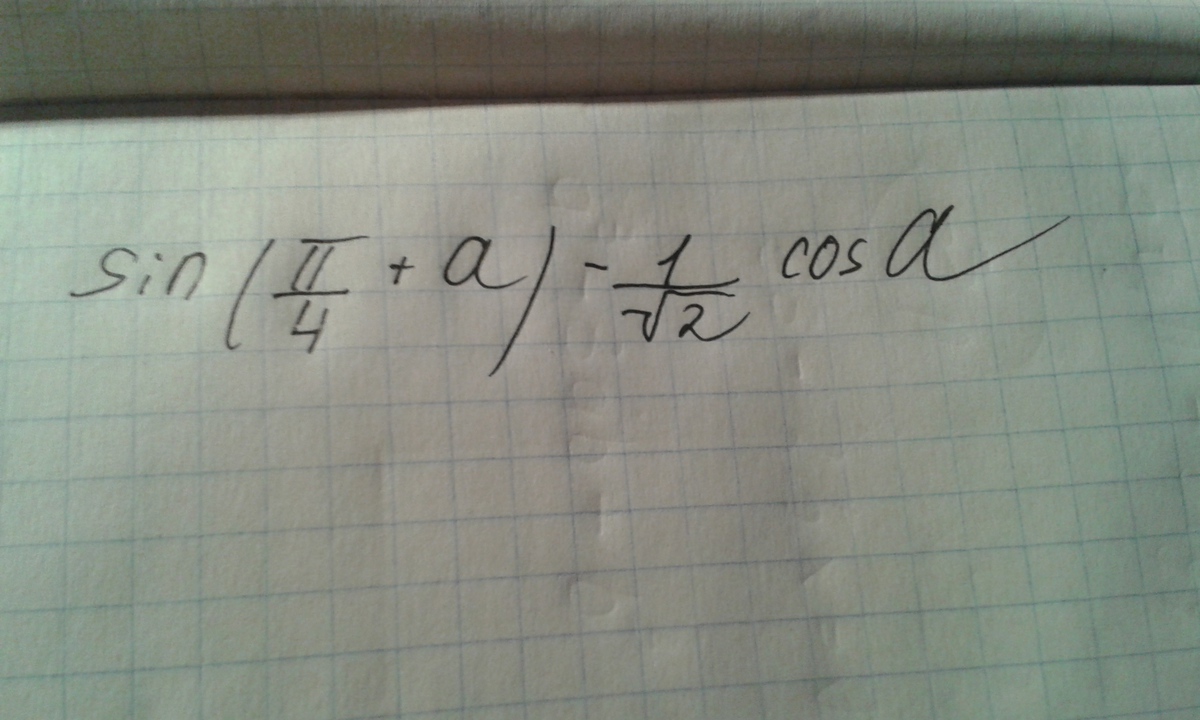 sin(π/4 + a) - 1/√2 cos a